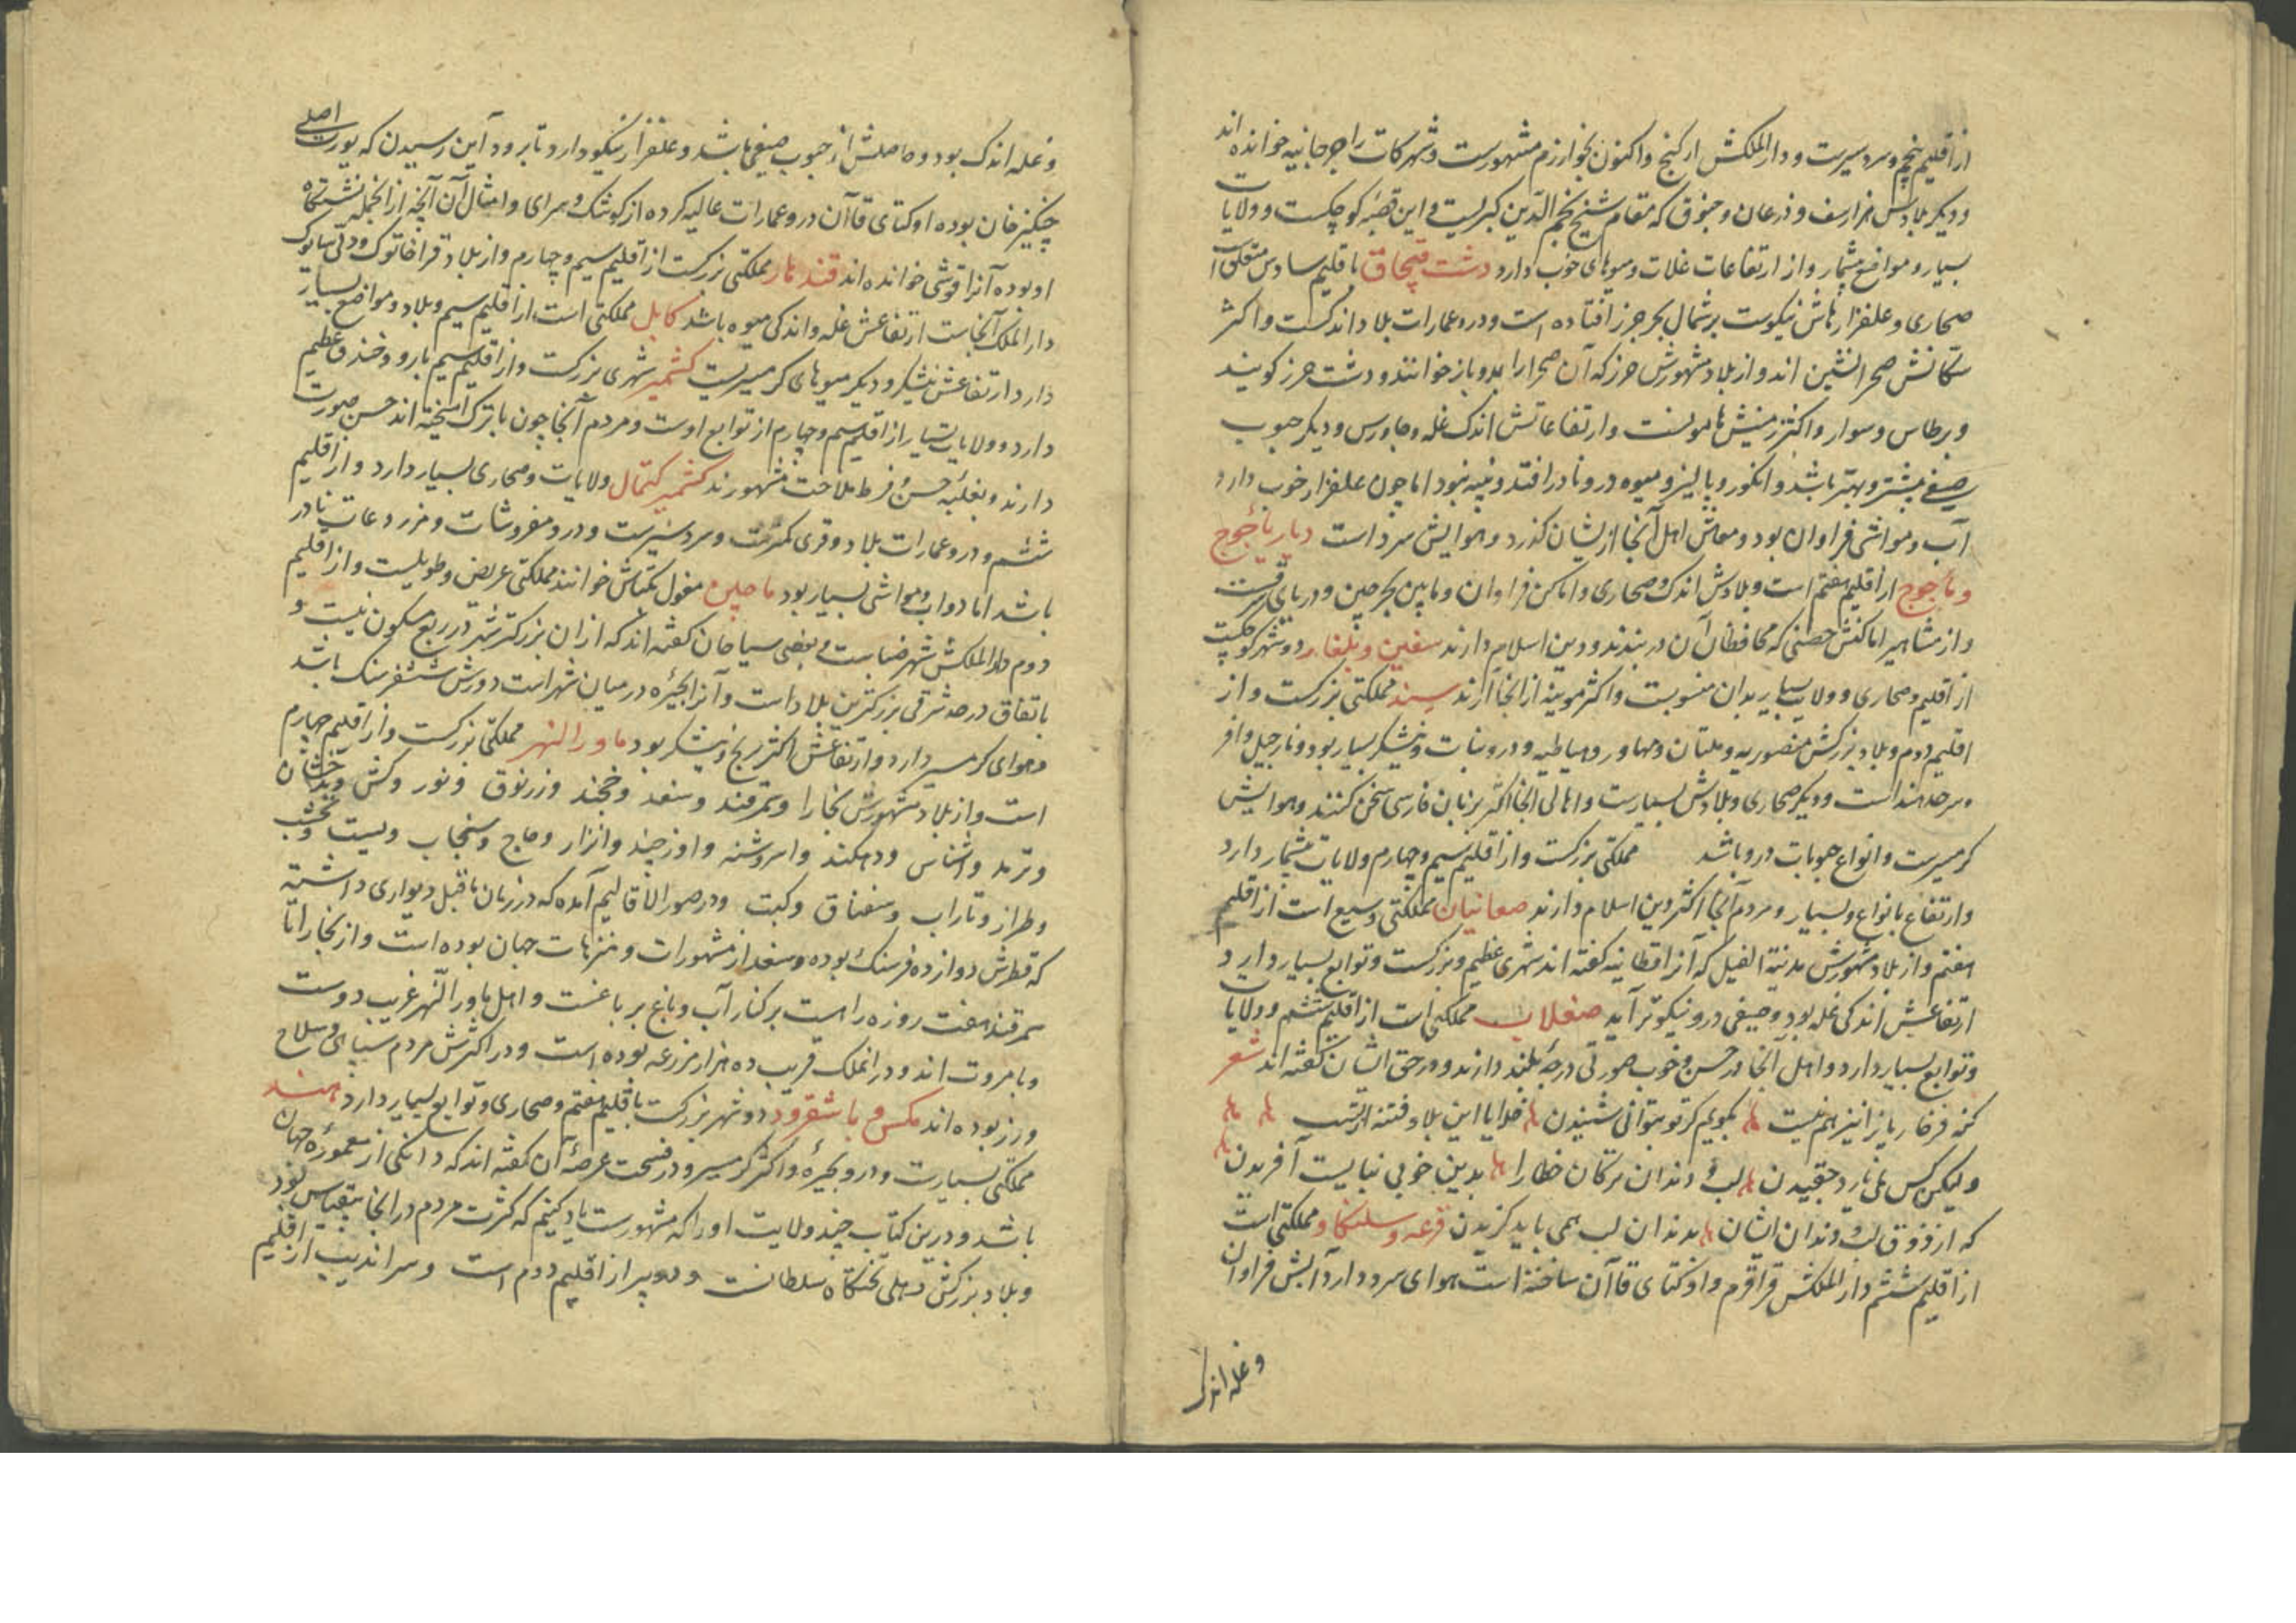 از اقلیم پنجم و سردسیرست و دارالملکش ارکنج و اکنون بخوارزم مشهورست و شهر کات را جرجانیه خوانده اند
و دیکر بلادش هزارسف و درعان و جنوق که مقام شیخ نجم الدین کبریست و این قصبه کوچکست و ولایات
بسیار و مواضع بیشمار و از ارتفاعات غلات و میوهای خوب دارد دشت قبچاق باقلیم سادس متعلق است
صحاری و علفزارهاش نیکوست بر شمال بحر جرز افتاده است و درو عمارات بلاد اندکست و اکثر
سکانش صحرانشین اند و از بلاد مشهورش خرز که آن صحرا را بدو باز خوانند و دشت خرز کویند
و برطاس و سوار و اکثر زمینش هامونست و ارتفاعاتش اندک غله و جاورس و دیکر حبوب
صیفی بیشتر و بهتر باشد و انکور و بالیز و میوه درو نادر افتد و پنبه نبود اما چون علفزار خوب دارد
آب و مواشی فراوان بود و معاش اهل آنجا ازیشان کذرد و هوایش سرد است دیار یأجوج
و مأجوج از اقلیم هفتم است و بلادش اندک و صحاری و اماکن فراوان و مابین بحر چین و دریای
و از مشاهیر اماکنش حصنی که محافظان آن دربندند و دین اسلام دارند سقین و بلغار دو شهر کوچکست
از اقلیم و صحاری و ولایت بسیار بدان منسوبست و اکثر موینه از آنجا آرند سند مملکتی بزرکست و از
اقلیم دوم و بلاد بزرکش منصوریه و ملتان و مهاور و بهاطیه و درو نبات و نیشکر بسیار بود و نارجیل وافر
و سرحد هند است و دیکر صحاری و بلادش بسیارست و اهالی آنجا اکثر بزبان فارسی سخن کنند و هوایش
کرمسیرست و انواع حبوبات درو باشد مملکتی بزرکست و از اقلیم سیم و چهارم ولایات بیشمار دارد
و ارتفاع بانواع و بسیار و مردم آنجا اکثر دین اسلام دارند صغانیان مملکتی وسیع است از اقلیم
هفتم و از بلاد مشهورش مدینة الفیل که آنرا قطانیه کفته اند شهری عظیم و بزرکست و توابع بسیار دارد
ارتفاعش اندکی غله بود و صیفی درو نیکوتر آید صقلاب مملکتی است از اقلیم ششم و ولایات
و توابع بسیار دارد و اهل آنجا در حسن و خوب صورتی درجهٔ بلند دارند و در حق ایشان کفته اند شعر
کنه فرخار یانرا نیز هم نیست بکویم کر تو بتوانی شنیدن خدایا این بلا و فتنه از تست
ولیکن کس نمی یارد چخیدن لب و دندان ترکان خطا را بدین خوبی نبایست آفریدن
که از ذوق لب و دندان ایشان بدندان لب همی باید کزیدن قرغه و سلنکا و مملکتی است
از اقلیم ششم دارالملکش قراقرم و اوکتای قاآن ساخته است هوای سرد دارد آبش فراوان
و غله اندک
و غله اندک بود و حاصلش از حبوب صیفی باشد و علفزار نیکو دارد تا برود آبن رسیدن که یورت اصلی
چنکیز خان بوده اوکتای قاآن درو عمارات عالیه کرده از کوشک و سرای و امثال آن آنچه از آنجمله نشستکاه
او بوده آنرا قوشی خوانده اند قندهار مملکتی بزرکست از اقلیم سیم و چهارم و از بلاد
دارالملک آنجاست ارتفاعش غله و اندکی میوه باشد کابل مملکتی است از اقلیم سیم و بلاد و مواضع بسیار
دارد ارتفاعش نیشکر و دیکر میوهای کرمسیریست کشمیر شهری بزرکست و از اقلیم سیم بارو و خندق عظیم
دارد و ولایات بسیار از اقلیم سیم و چهارم از توابع اوست و مردم آنجا چون با ترک آمیخته اند حسن صورت
دارند و بغلبهٔ حسن و فرط ملاحت مشهورند کشمیر کتمال ولایات و صحاری بسیار دارد و از اقلیم
ششم و درو عمارات بلاد و قری کمترست و سردسیرست و درو مفروشات و مزروعات نادر
باشد اما دواب و مواشی بسیار بود ماچین مغول تکناش خوانند مملکتی عریض و طویلست و از اقلیم
دوم دارالملکش شهر خنساست و بعضی سیاحان کفته اند که از آن بزرکتر شهر در ربع مسکون نیست و
باتفاق در حد شرقی بزرکترین بلاد است و آنرا بحیره در میان شهر است دورش شش فرسنک باشد
و هوای کرمسیر دارد و ارتفاعش اکثر برنج و نیشکر بود ماورالنهر مملکتی بزرکست و از اقلیم چهارم
است و از بلاد مشهورش بخارا و سمرقند و سغد و خجند و زرنوق و نور و کش و بدخشان
و ترمد و اشناس و دهکند و اسروشنه و اوزجند و اترار و جاج و سنجاب و بست و نخشب
و طراز و تاراب و سغناق و کبت و در صورالاقالیم آمده که در زمان ماقبل دیواری داشته
که قطرش دوازده فرسنک بوده و سغد از مشهورات و منتزهات جهان بوده است و از بخارا تا
سمرقند هفت روزه راهست بر کنار آب و باغ بر باغست و اهل ماورالنهر غریب دوست
و بامروت اند و در آنملک قریب ده هزار مزرعه بوده است و در اکثرش مردم سپاهی و سلاح
ورز بوده اند مکس و باشقرود دو شهر بزرکست باقلیم هفتم و صحاری و توابع بسیار دارد هند
مملکتی بسیارست و درو بحیره و اکثر کرمسیر و در فسحت عرصهٔ آن کفته اند که دانکی از معمورهٔ جهان
باشد و درین کتاب چند ولایت او را که مشهورست یاد کنیم که کثرت مردم در آنجا بیقیاس بود
و بلاد بزرکش دهلی تختکاه سلطانست و از اقلیم دوم است و سراندیب از اقلیم